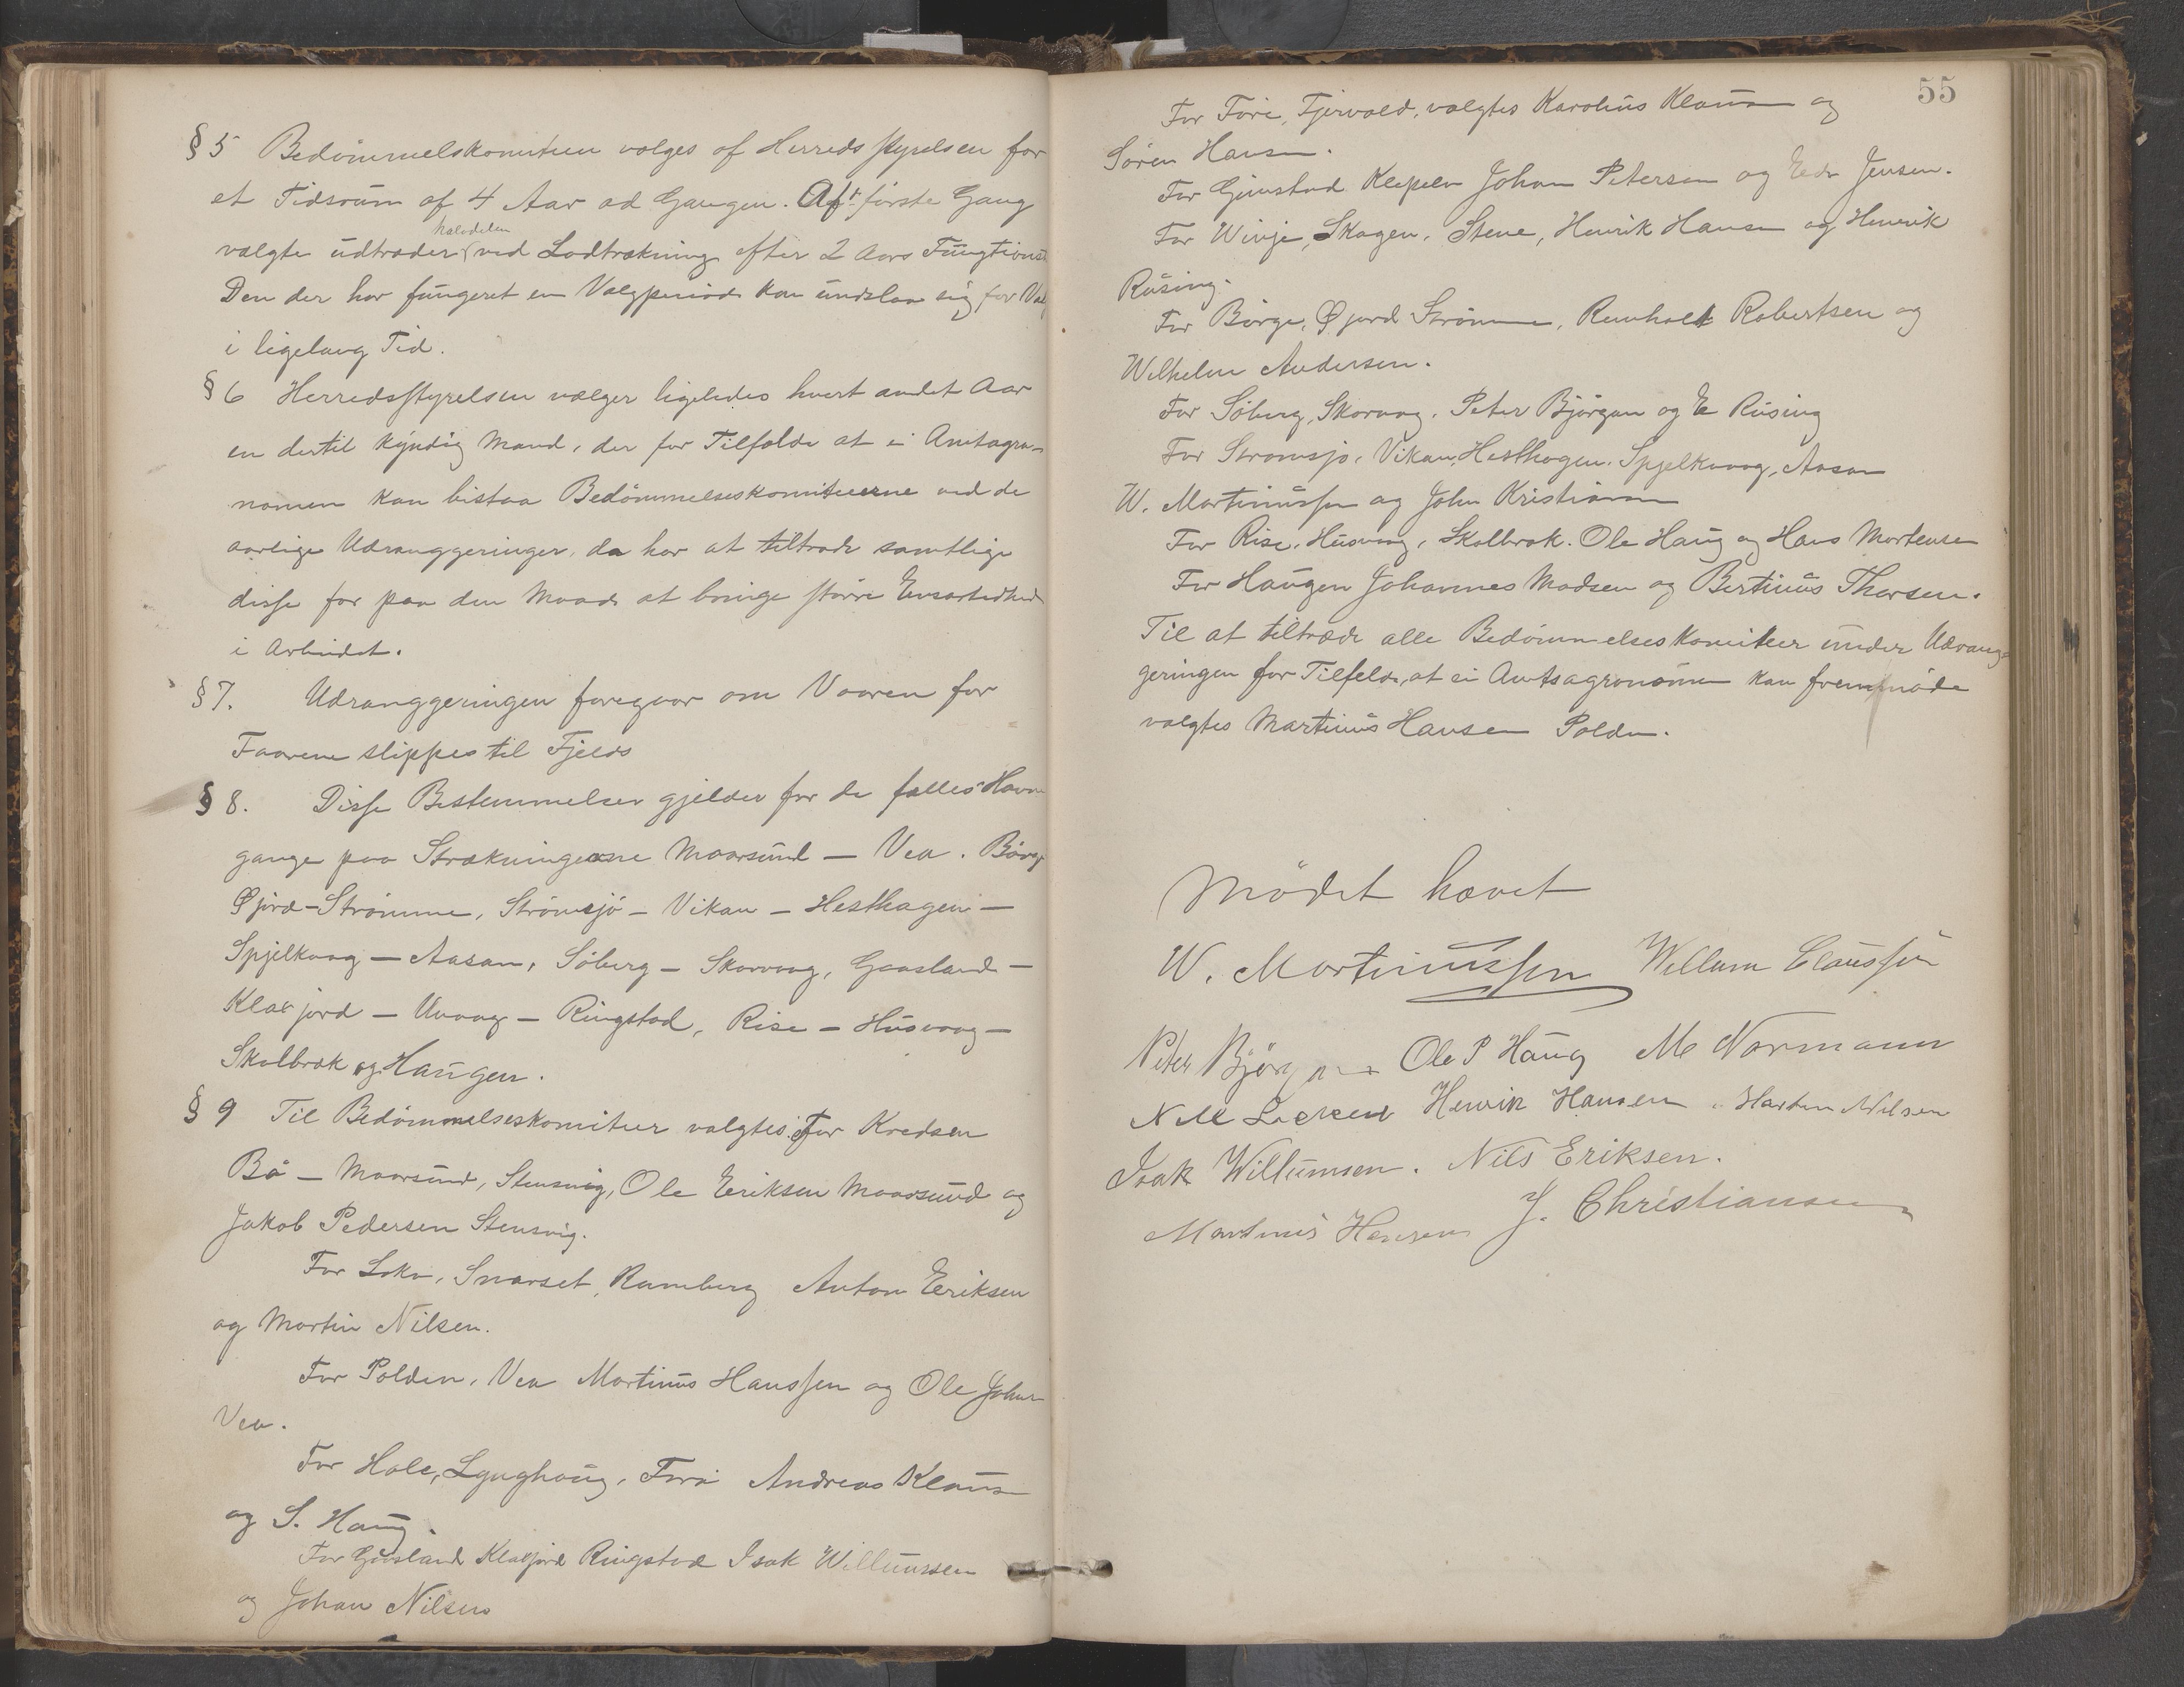 § 5 Bedömmelskomiteen vælges af Herredsstyrelsen for
et Tidsrum af 4 Aar ad Gangen. Af første Gang
halvdelen
valgte udtræder ved Lodtrækning efter 2 Aars Fungtions
Den der har fungeret en Valgperiode kan undslaa sig for Valg
i ligelang Tid.
§ 6 Herredsstyrelsen vælger ligeledes hvert andet Aar
en dertil kyndig Mand, der for Tilfælde at ei Amtagro-
nomen kan bistaa Bedömmelseskomiteerne ved de
aarlige Udranggeringer, da har at tiltræde samtlige
disse for paa den Maade at bringe større Ensartedhed
i Arbeidet.
§ 7. Udranggeringen foregaar om Vaaren før
Faarene slippes til Fjelds
§ 8. Disse Bestemmelser gjelder for de fælles Havne
gange paa Strækningerne Maarsund — Vea. Börge
Øjord - Strömme, Strömsjö - Vikan - Hesthagen -
Spjelkvaag - Aasan, Söberg - Skarvaag, Gaasland -
Klakjord - Uvaag - Ringstad, Rise - Husvaag -
Skalbrak og Haugen.
§ 9 Til Bedömmelseskomiteer valgtes: For Kredsen
Bö - Maarsund, Stensvig, Ole Eriksen Maarsund og
Jakob Pedersen Stensvig.
For Snarset, Ramberg Anton Eriksen
og Martin Nilsen.
For Polden, Vea Martinus Hanssen og Ole Johns
Vea.
For Hale, Lynghaug, Före Andreas Klaus
og S. Haug.
For Gaasland Klakjord Ringstad Isak Willumsen
og Johan Nilsen
55
For Före, Fjervold, valgtes Karolius Klaus og
Sören Hansen.
For Gimstad Klepeln Johan Petersen og Jensen.
For Winje, Skagen, Steine, Henrik Hansen og Henrik
Rusing.
For Börge, Øjord Strömme, Reinholt Robertsen og
Wilhelm Andersen.
For Söberg, Skarvaag, Peter Björgan og E Rusing
For Strömsjö, Vikan, Hesthagen, Spjelkvaag, Aasan
W. Martinussen og John Kristiansen
For Rise, Husvaag, Skalbrak. Ole Haug og Hans Mortensen
For Haugen Johannes Madsen og Bertinus Thorsen.
Til at tiltræde alle Bedömmelseskomiteer under Udrang-
geringen for Tilfelde, at ei Amtsagronomen kan fremmöde
valgtes Martinus Hansen Polden.
Mödet hævet
W. Martinussen Willum Claussen
Peter Björgan Ole P Haug M Normann
N M Henrik Hansen Martin Nilsen
Isak Willumsen. Nils Eriksen.
Martinus Hansen J. Christiansen